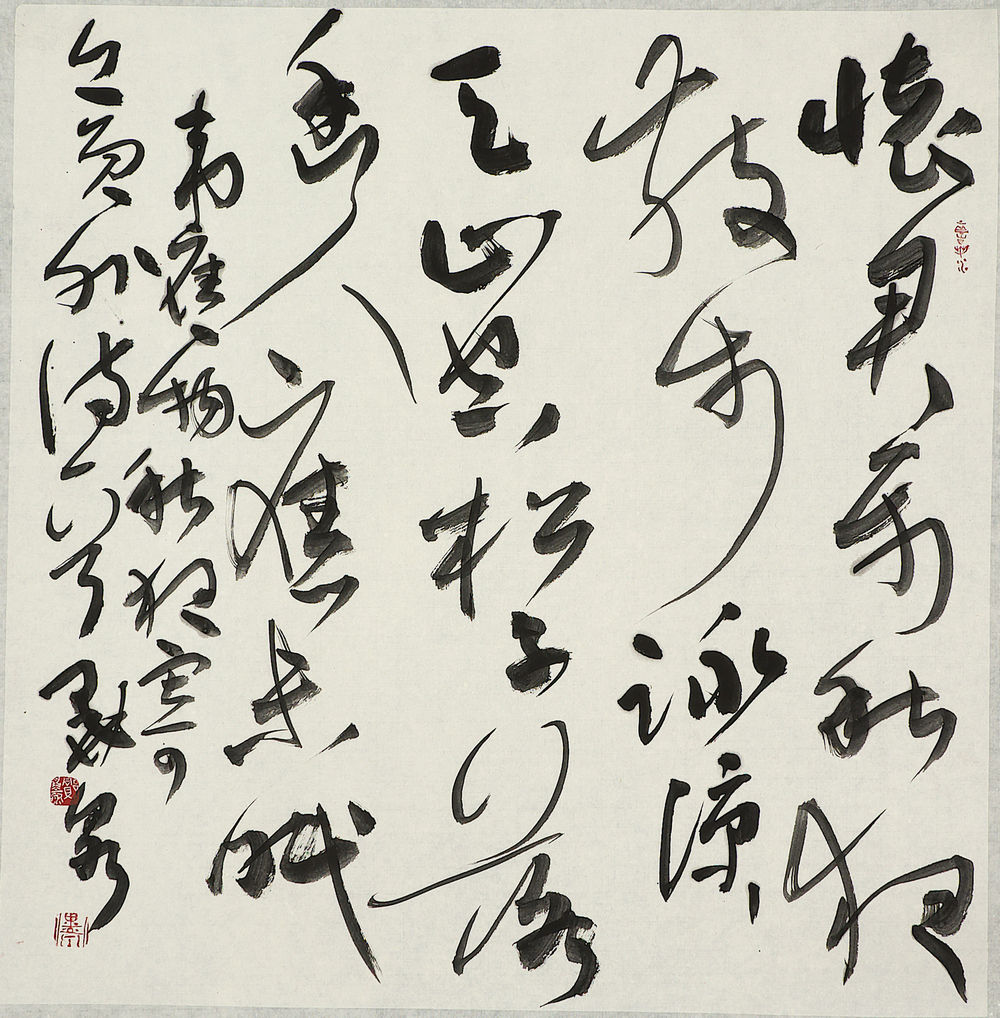 懷君属秋夜
散步詠涼
天山空松子落
幽人應未眠
韋應物秋夜寄
丘員外詩一首